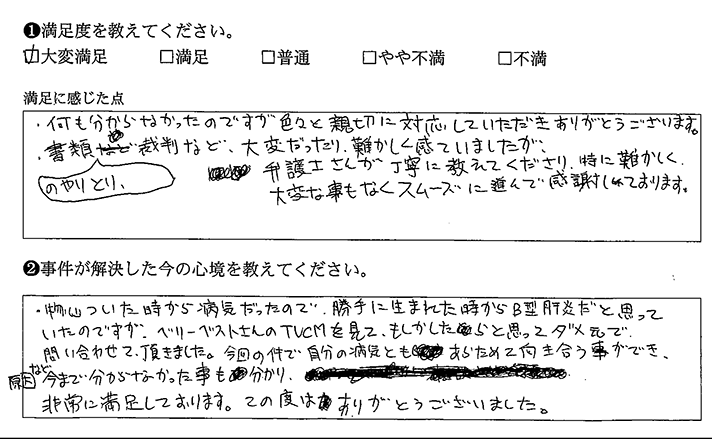 ❶満足度を教えてください。
☑大変満足 □満足 □普通 □やや不満 □不満
満足に感じた点
・何も分からなかったのですが色々と親切に対応していただきありがとうございます。
・書類のやりとり、裁判など、大変だったり、難かしく感ていましたが、
弁護士さんが丁寧に教えてくださり、特に難かしく、
大変な事もなくスムーズに進んで感謝しております。
❷事件が解決した今の心境を教えてください。
・物心ついた時から病気だったので、勝手に生まれた時からB型肝炎だと思って
いたのですが、ベリーベストさんのTVCMを見て、もしかしたらと思ってダメ元で
問い合わせて頂きました。今回の件で自分の病気ともあらためて向き合う事ができ、
原因など今まで分からなかった事も分かり、
非常に満足しております。この度はありがとうございました。